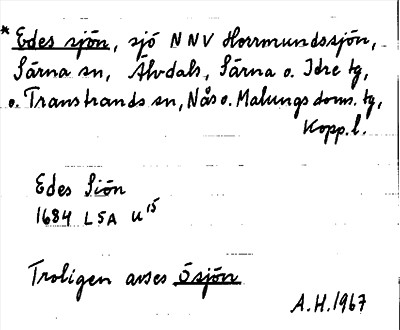 * Edes sjön, sjö NNV Horrmundssjön,
Särna sn, Älvdals, Särna o. Idre tg,
o. Transtrands sn, Nås o. Malungs doms. tg,
Kopp. l.
Edes Siön
1684 LSA U 15
Troligen avses Ösjön
A.H. 1967